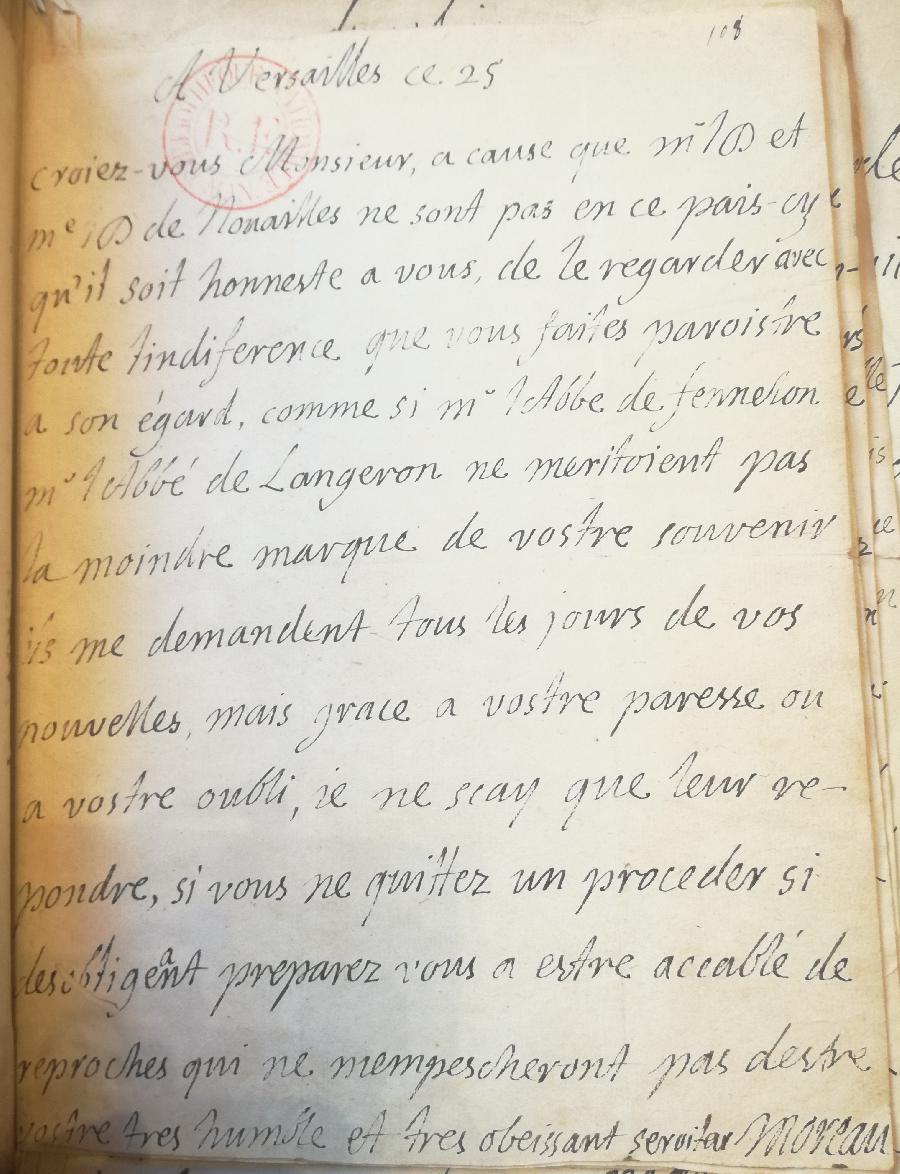 108
A Versailles ce 25
croiez-vous Monsieur, a cause que mr et
me de Nouailles ne sont pas en ce pais-cy
qu'il soit honneste a vous, de le regarder avec
toute l'indiference que vous faites paroistre
a son égard, comme si mr l'Abbe de fennelon
mr l'Abbé de Langeron ne meritoient pas
la moindre marque de vostre souvenir
ils me demandent tous les jours de vos
nouvelles, mais grace a vostre paresse ou
a vostre oubli, ie ne scay que leur re-
pondre, si vous ne quittez un proceder si
desobligeant preparez vous a estre accablé de
reproches qui ne mempescheront pas destre
vostre tres humble et tres obeissant serviteur Moreau